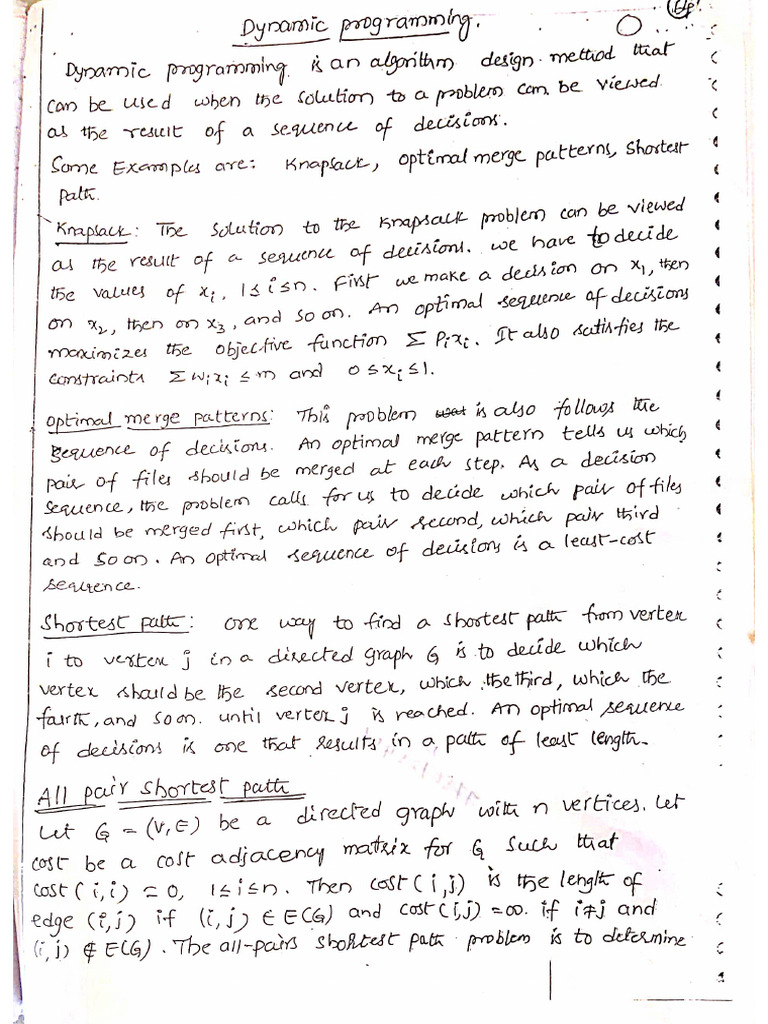 Dynamic programming.
Dynamic programming is an algorithm design method that
can be used when the solution to a problem can be viewed
as the result of a sequence of decisions.
Some Examples are: Knapsack, optimal merge patterns, Shortest
path.
Knapsack: The solution to the knapsack problem can be viewed
as the result of a sequence of decisions. we have to decide
the values of xᵢ, 1≤i≤n. First we make a decision on x₁, then
on x₂, then on x₃, and so on. An optimal sequence of decisions
maximizes the objective function Σ Pᵢxᵢ. It also satisfies the
constraints Σwᵢxᵢ ≤ m and 0≤xᵢ≤1.
optimal merge patterns: This problem is also follows the
sequence of decisions. An optimal merge pattern tells us which
pair of files should be merged at each step. As a decision
sequence, the problem calls for us to decide which pair of files
should be merged first, which pair second, which pair third
and so on. An optimal sequence of decisions is a least-cost
sequence.
Shortest path: one way to find a shortest path from vertex
i to vertex j in a directed graph G is to decide which
vertex should be the second vertex, which the third, which the
fourth, and so on. until vertex j is reached. An optimal sequence
of decisions is one that results in a path of least length.
All pair shortest path
Let G = (V,E) be a directed graph with n vertices. Let
cost be a cost adjacency matrix for G such that
cost(i,i) = 0, 1≤i≤n. Then cost(i,j) is the length of
edge (i,j) if (i,j) ∈ E(G) and cost(i,j) = ∞. if i≠j and
(i,j) ∉ E(G). The all-pairs shortest path problem is to determine